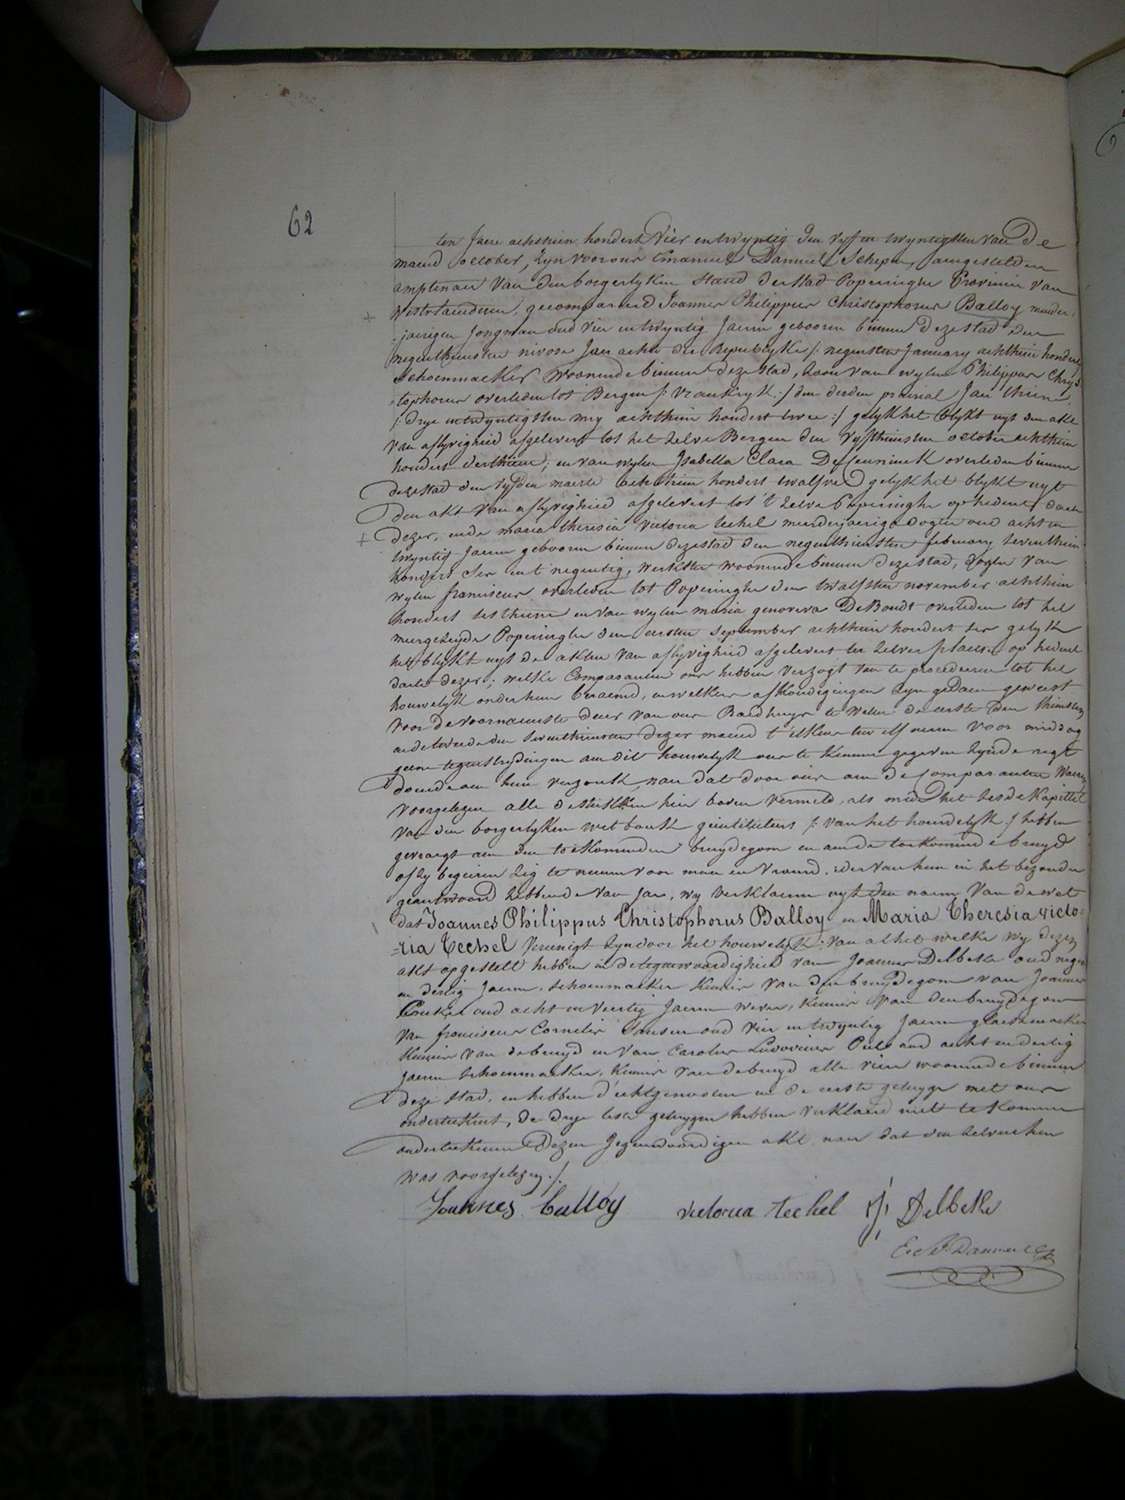 62
ten Jaere achthien hondert Vier en twyntig den vyf en twyntigsten van de
maend october, zyn voor ons Emanuel Daniel Schepen, aengestelden
amptenaer van den borgerlyken stand der stad Poperinghe Provincie van
Westvlaenderen, gecompareerd Joannes Philippus Christophorus Balloy minder-
jaerigen jongman oud vier en twyntig Jaeren gebooren binnen deze stad den
negenthiensten nivose Jaer achte der Republyke /: negensten January achthien hondert
schoenmaeker woonende binnen deze stad, zoon van wylen Philippus Chrys
tophorus overleden tot Bergen /: Vrankryk :/ den derden prairial Jaer thien
/: drye en twyntigsten mey achthien hondert twee :/ gelyk het blykt uyt den akt
van aflyvigheid afgelevert tot het zelve Bergen den vyfthiensten october achthien
hondert derthiene, en van wylen Isabella Clara Desceuninck overleden binnen
deze stad den vyfden maerte achthien hondert twalf gelyk het blykt uyt
den akt van aflyvigheid afgelevert tot 't zelve Poperinghe op heden daete
dezer, ende maria theresia victoria techel meerderjaerige dogter oud acht en
twyntig Jaeren gebooren binnen deze stad den negenthiensten february zeventhien
hondert ses en t' negentig, werkster woonende binnen deze stad, dogter van
wylen franciscus overleden tot Poperinghe den twalfsten november achthien
hondert sesthiene en van wylen maria genoveva De Boudt overleden tot het
meergezeyde Poperinghe den eersten september achthien hondert ses gelyk
het blykt uyt de akten van aflyvigheid afgelevert ten zelver plaetse op heden
daete dezer; welke Comparanten ons hebben verzogt van te procederen tot het
houwelyk onder hun beraemd, en welkers afkondigingen zyn gedaen geweest
voor de voornaemste deure van ons Raedhuys te weten de eerste den thiensten
en de tweede den seventhiensten dezer maend t'elkens ten elf ueren voor middag
geene tegenstrydingen aen dit houwelyk ons te kennen gegeven zynde regt
doende aen hun verzoek, naer dat door ons aen de comparanten waeren
voorgelezen alle de stukken hier boven vermeld, als mede het sesde Kapittel
van den borgerlyken wetboek geintituleert /: van het houwelyk :/ hebben
gevraegt aen den toekomenden bruydegom en aen de toekomende bruyd
of zy begeiren zig te nemen voor man en vrouw, ider van hun in het bezonder
geantwoord hebbende van Jae, wy verklaeren uyt den naem van de wet
dat Joannes Philippus Christophorus Balloy en Maria Theresia victo-
-ria Techel vereenigt zyn door het houwelyk: van al het welke wy dezen
akt opgestelt hebben in de tegenwoordigheid van Joannes Delbeke oud negen
en dertig Jaeren, schoenmaeker kennis van den bruydegom van Joannes
oud acht en veertig Jaeren wever, kennis van den bruydegom
van franciscus Cornelis Jansen oud vier en twyntig Jaeren glaesemaeker
kennis van de bruyd en van Carolus Ludovicus oud acht en dertig
Jaeren schoenmaeker, kennis van de bruyd alle vier woonende binnen
deze stad, en hebben d'echtgenooten en de eerste getuyge met ons
onderteekent, de drye leste getuygen hebben verklaerd niet te konnen
onderteekenen dezen tegenwoordigen akt naer dat den zelven hun
was voorgelezen ./.
Joannes balloy victoria techel J. Delbeke